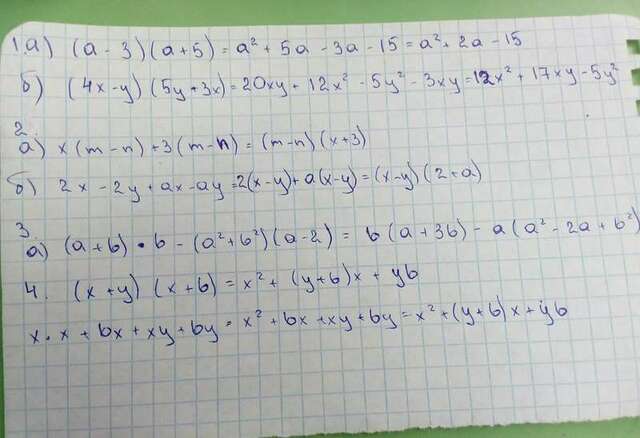 1.а) (a - 3)(a + 5) = a² + 5a - 3a - 15 = a² + 2a - 15
б) (4x - y)(5y + 3x) = 20xy + 12x² - 5y² - 3xy = 12x² + 17xy - 5y²
2.
а) x(m - n) + 3(m - n) = (m - n)(x + 3)
б) 2x - 2y + ax - ay = 2(x - y) + a(x - y) = (x - y)(2 + a)
3.
а) (a + b) • b - (a² + b²)(a - 2) = b(a + 3b) - a(a² - 2a + b²)
4. (x + y)(x + b) = x² + (y + b)x + yb
x • x + bx + xy + by = x² + bx + xy + by = x² + (y + b)x + yb